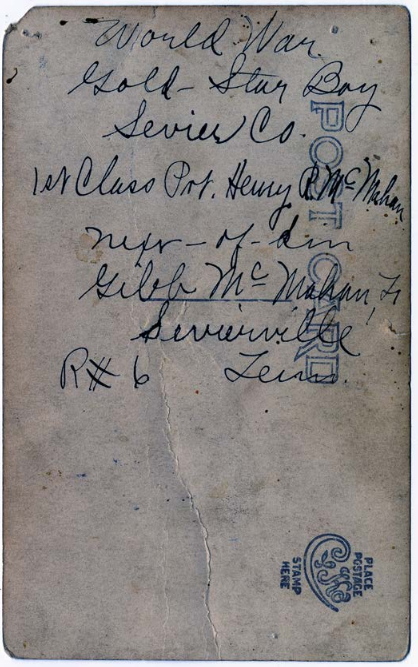 World War
Gold-Star Boy
Sevier Co.
1st Class Pvt. Henry R. McMahan
next-of-kin
McMahan
Sevierville
R# 6 Tenn.
POST CARD
PLACE
POSTAGE
STAMP
HERE